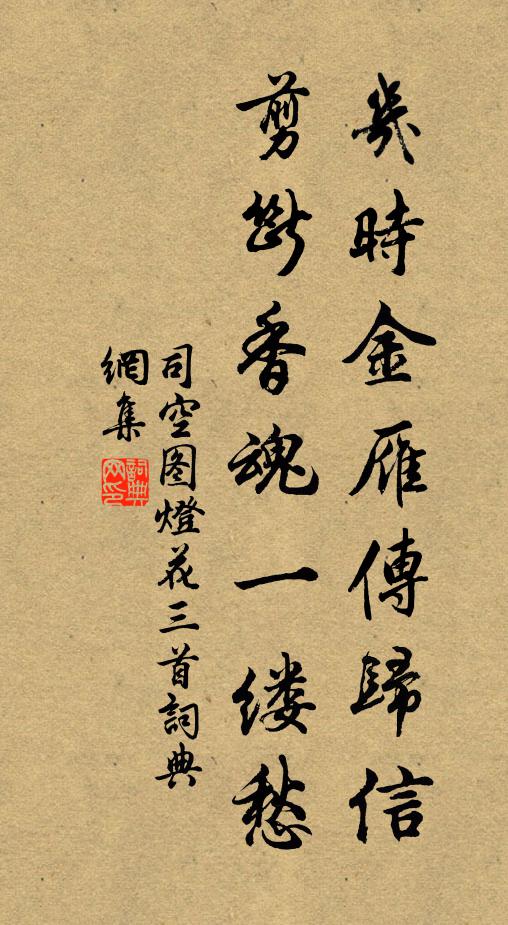 幾時金雁傳歸信
剪斷香魂一缕愁
司空图燈花三首詞典
網集
詞典
网印